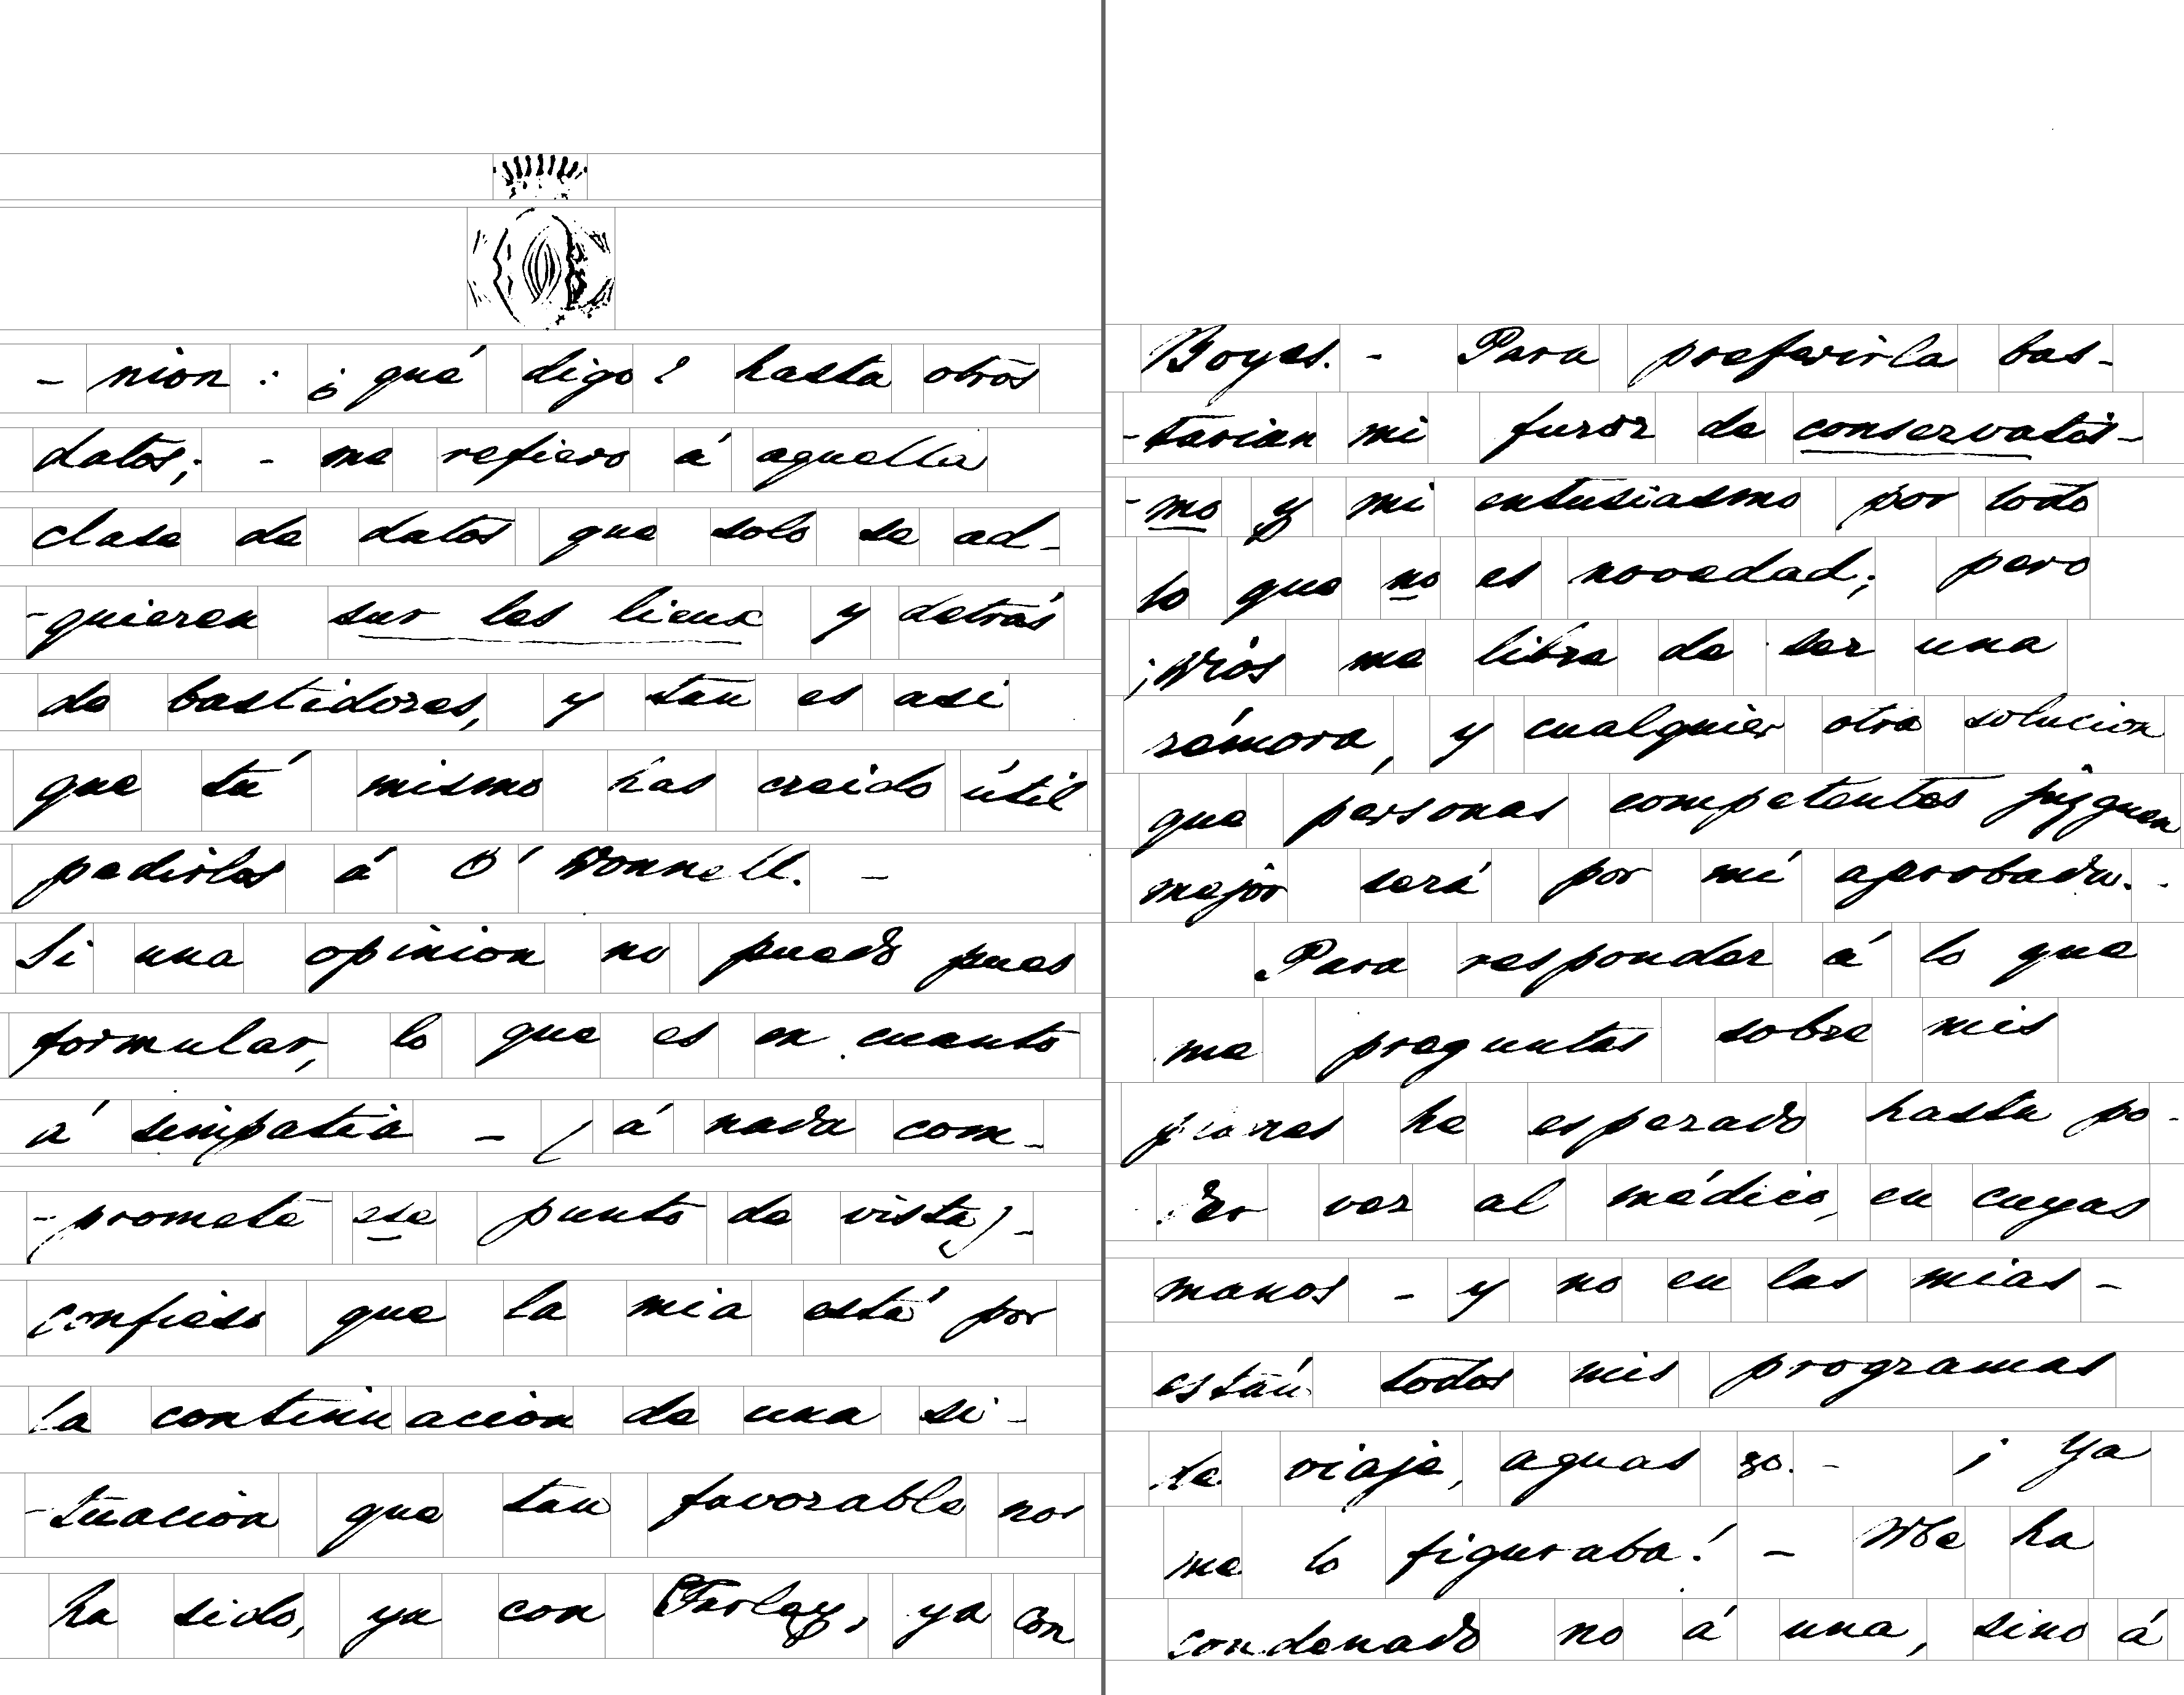 - nion : ¿ qué digo? hasta otros
datos; - me refiero á aquella
clase de datos que solo se ad-
-quieren sur les lieux y detrás
de bastidores, y tan es asi
que tú mismo has creido útil
pedirlos á O'Donnell. -
Si una opinion no puedo pues
formular, lo que es en cuanto
á simpatia - (á nada com-
-promete ese punto de vista) -
confieso que la mia está por
la continuacion de una si-
-tuacion que tan favorable nos
ha sido, ya con Farlay, ya con
Boyes. - Para preferirla bas-
-tarian mi furor de conservatis-
-mo y mi entusiasmo por todo
lo que no es novedad; pero
¡Dios me libre de ser una
rémora, y cualquier otra solucion
que personas competentes juzguen
mejor será por mí aprobada. -
Para responder á lo que
me preguntas sobre mis
planes he esperado hasta po-
der ver al médico, en cuyas
manos - y no en las mias -
están todos mis programas
de viaje, aguas &c. - ¡ Ya
me lo figuraba! - Me ha
condenado no á una, sino á